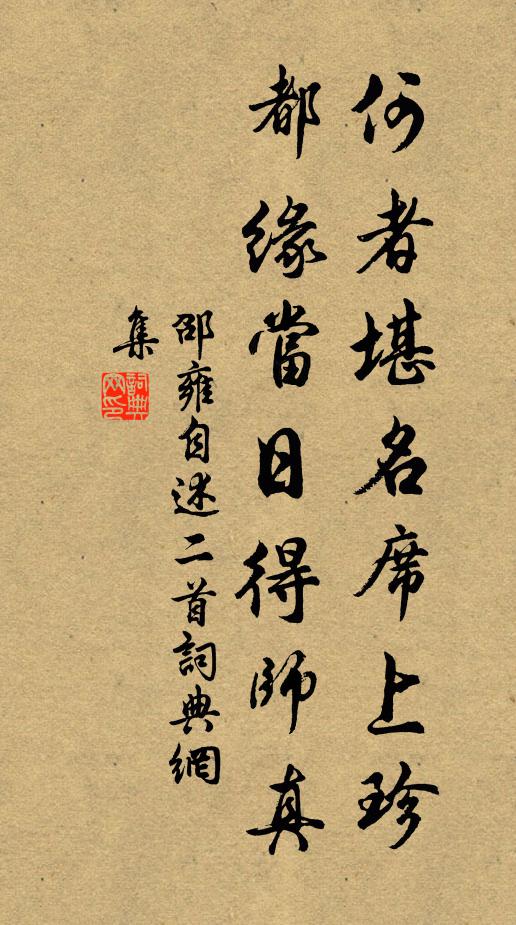 何者堪名席上珍
都緣當日得師真
邵雍自述二首詞典網
集
詞典
网印